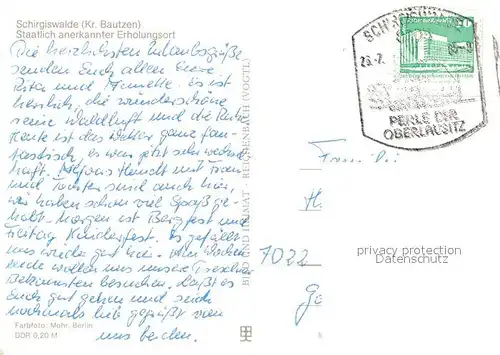 Schirgiswalde (Kr. Bautzen)
Staatlich anerkannter Erholungsort
Die herzlichsten Urlaubsgrüße
senden Euch allen Eure
Rita und Annette. Es ist
herrlich, die wunderschöne
reine Waldluft und die Ruhe.
Heute ist das Wetter ganz fan-
tastisch, es war jetzt sehr
haft. und Frau
und Tochter sind auch hier,
wir haben schon viel Spaß ge-
habt. Morgen ist Bergfest und
Freitag Kinderfest. Es gefällt
uns wieder gut hier. Am Wochen-
ende wollen uns unsere
Bekannten besuchen. Laßt es
Euch gut gehen und seid
nochmals lieb gegrüßt von
uns beiden.
Farbfoto: Mohr, Berlin
DDR 0,20 M
BILD UND HEIMAT · REICHENBACH (VOGTL)
PERLE DER
OBERLAUSITZ
7022
privacy protection
Datenschutz